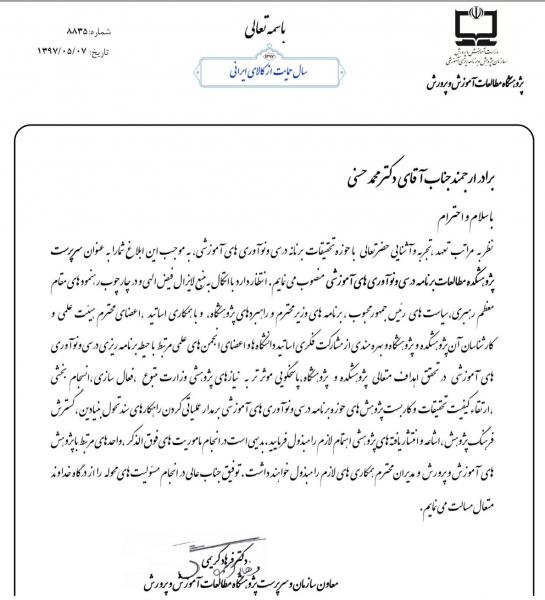 باسمه تعالی
شماره: ۸۸۳۵
تاریخ: ۱۳۹۷/۰۵/۰۷
۱۳۹۷
سال حمایت از کالای ایرانی
وزارت آموزش و پرورش
سازمان پژوهش و برنامه ریزی آموزشی
پژوهشگاه مطالعات آموزش و پرورش
برادر ارجمند جناب آقای دکتر محمد حسنی
با سلام و احترام
نظر به مراتب تعهد، تجربه و آشنایی حضرتعالی با حوزه تحقیقات برنامه درسی و نوآوری های آموزشی، به موجب این ابلاغ شما را به عنوان سرپرست
پژوهشکده مطالعات برنامه درسی و نوآوری های آموزشی منصوب می نمایم. انتظار دارد با اتکال به منبع لایزال فیض الهی و در چارچوب رهنمودهای مقام
معظم رهبری، سیاست های رییس جمهور محبوب، برنامه های وزیر محترم و راهبردهای پژوهشگاه، و با همکاری اساتید، اعضای محترم هیئت علمی و
کارشناسان آن پژوهشکده و پژوهشگاه و بهره مندی از مشارکت فکری اساتید دانشگاه ها و اعضای انجمن های علمی مرتبط با حیطه برنامه ریزی درسی و نوآوری
های آموزشی در تحقق اهداف متعالی پژوهشکده و پژوهشگاه، پاسخگویی موثرتر به نیازهای پژوهشی وزارت متبوع، فعال سازی، انجام بخشی
، ارتقاء کیفیت تحقیقات و کاربست پژوهش های حوزه برنامه درسی و نوآوری های آموزشی بر مدار عملیاتی کردن راهکارهای سند تحول بنیادین، گسترش
فرهنگ پژوهش، اشاعه و انتشار یافته های پژوهشی اهتمام لازم را مبذول فرمایید. بدیهی است در انجام ماموریت های فوق الذکر، واحدهای مرتبط با پژوهش
های آموزش و پرورش و مدیران محترم همکاری های لازم را مبذول خواهند داشت. توفیق جناب عالی در انجام مسئولیت های محوله را از درگاه خداوند
متعال مسالت می نمایم.
دکتر فرهاد کریمی
معاون سازمان و سرپرست پژوهشگاه مطالعات آموزش و پرورش